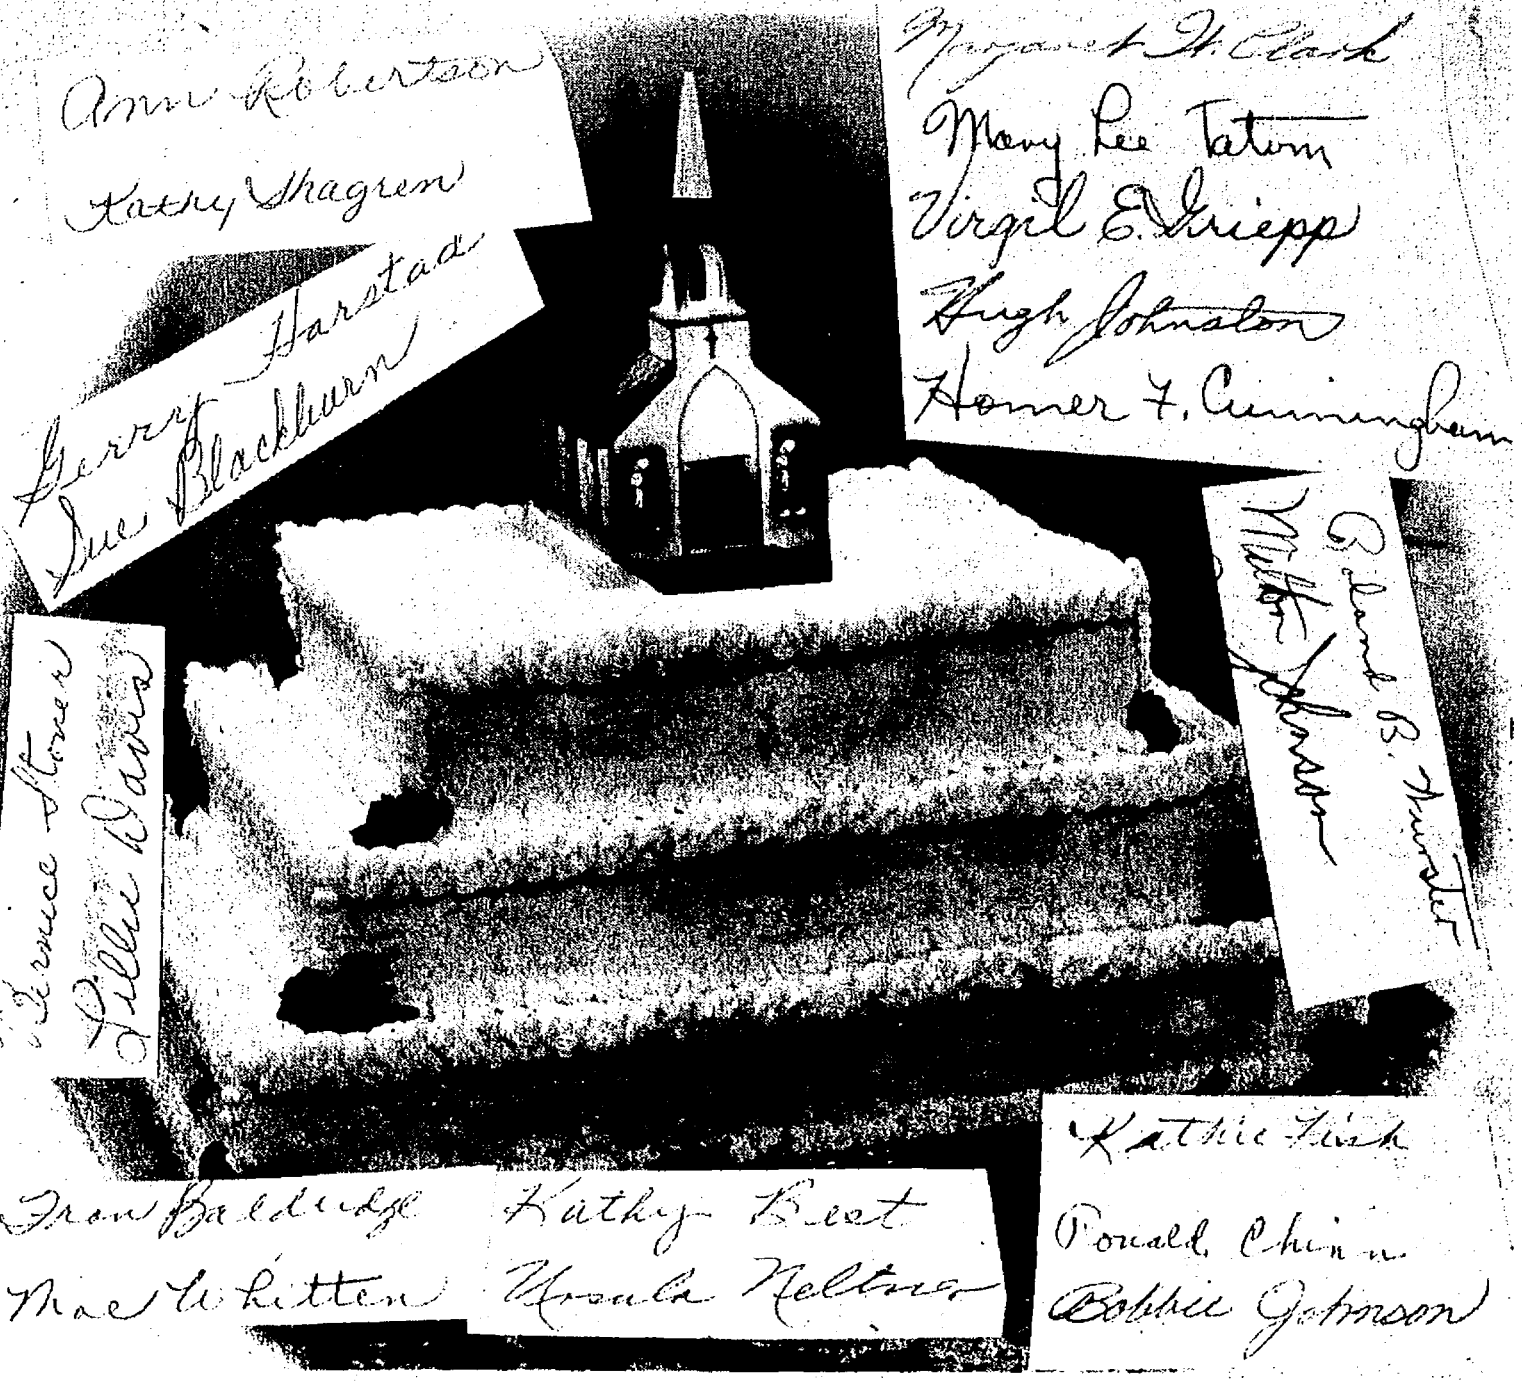 Ann Robertson
Kathy Skagren
Gerry Harstad
Sue Blackburn
Margaret H. Clark
Mary Lee Tatom
Virgil E. Griepp
Hugh Johnston
Homer F. Cunningham
Milton Johnson
B.
Bernice Stoner
Lillie Davis
Fran Baldridge
Mae Whitten
Kathy Best
Ursula Neltner
Kathie Fish
Ronald Chinn
Bobbie Johnson